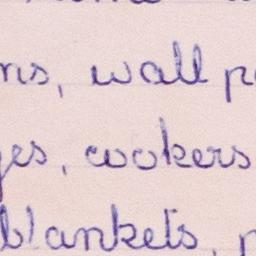 ns, wall p
es, cookers
blankets,